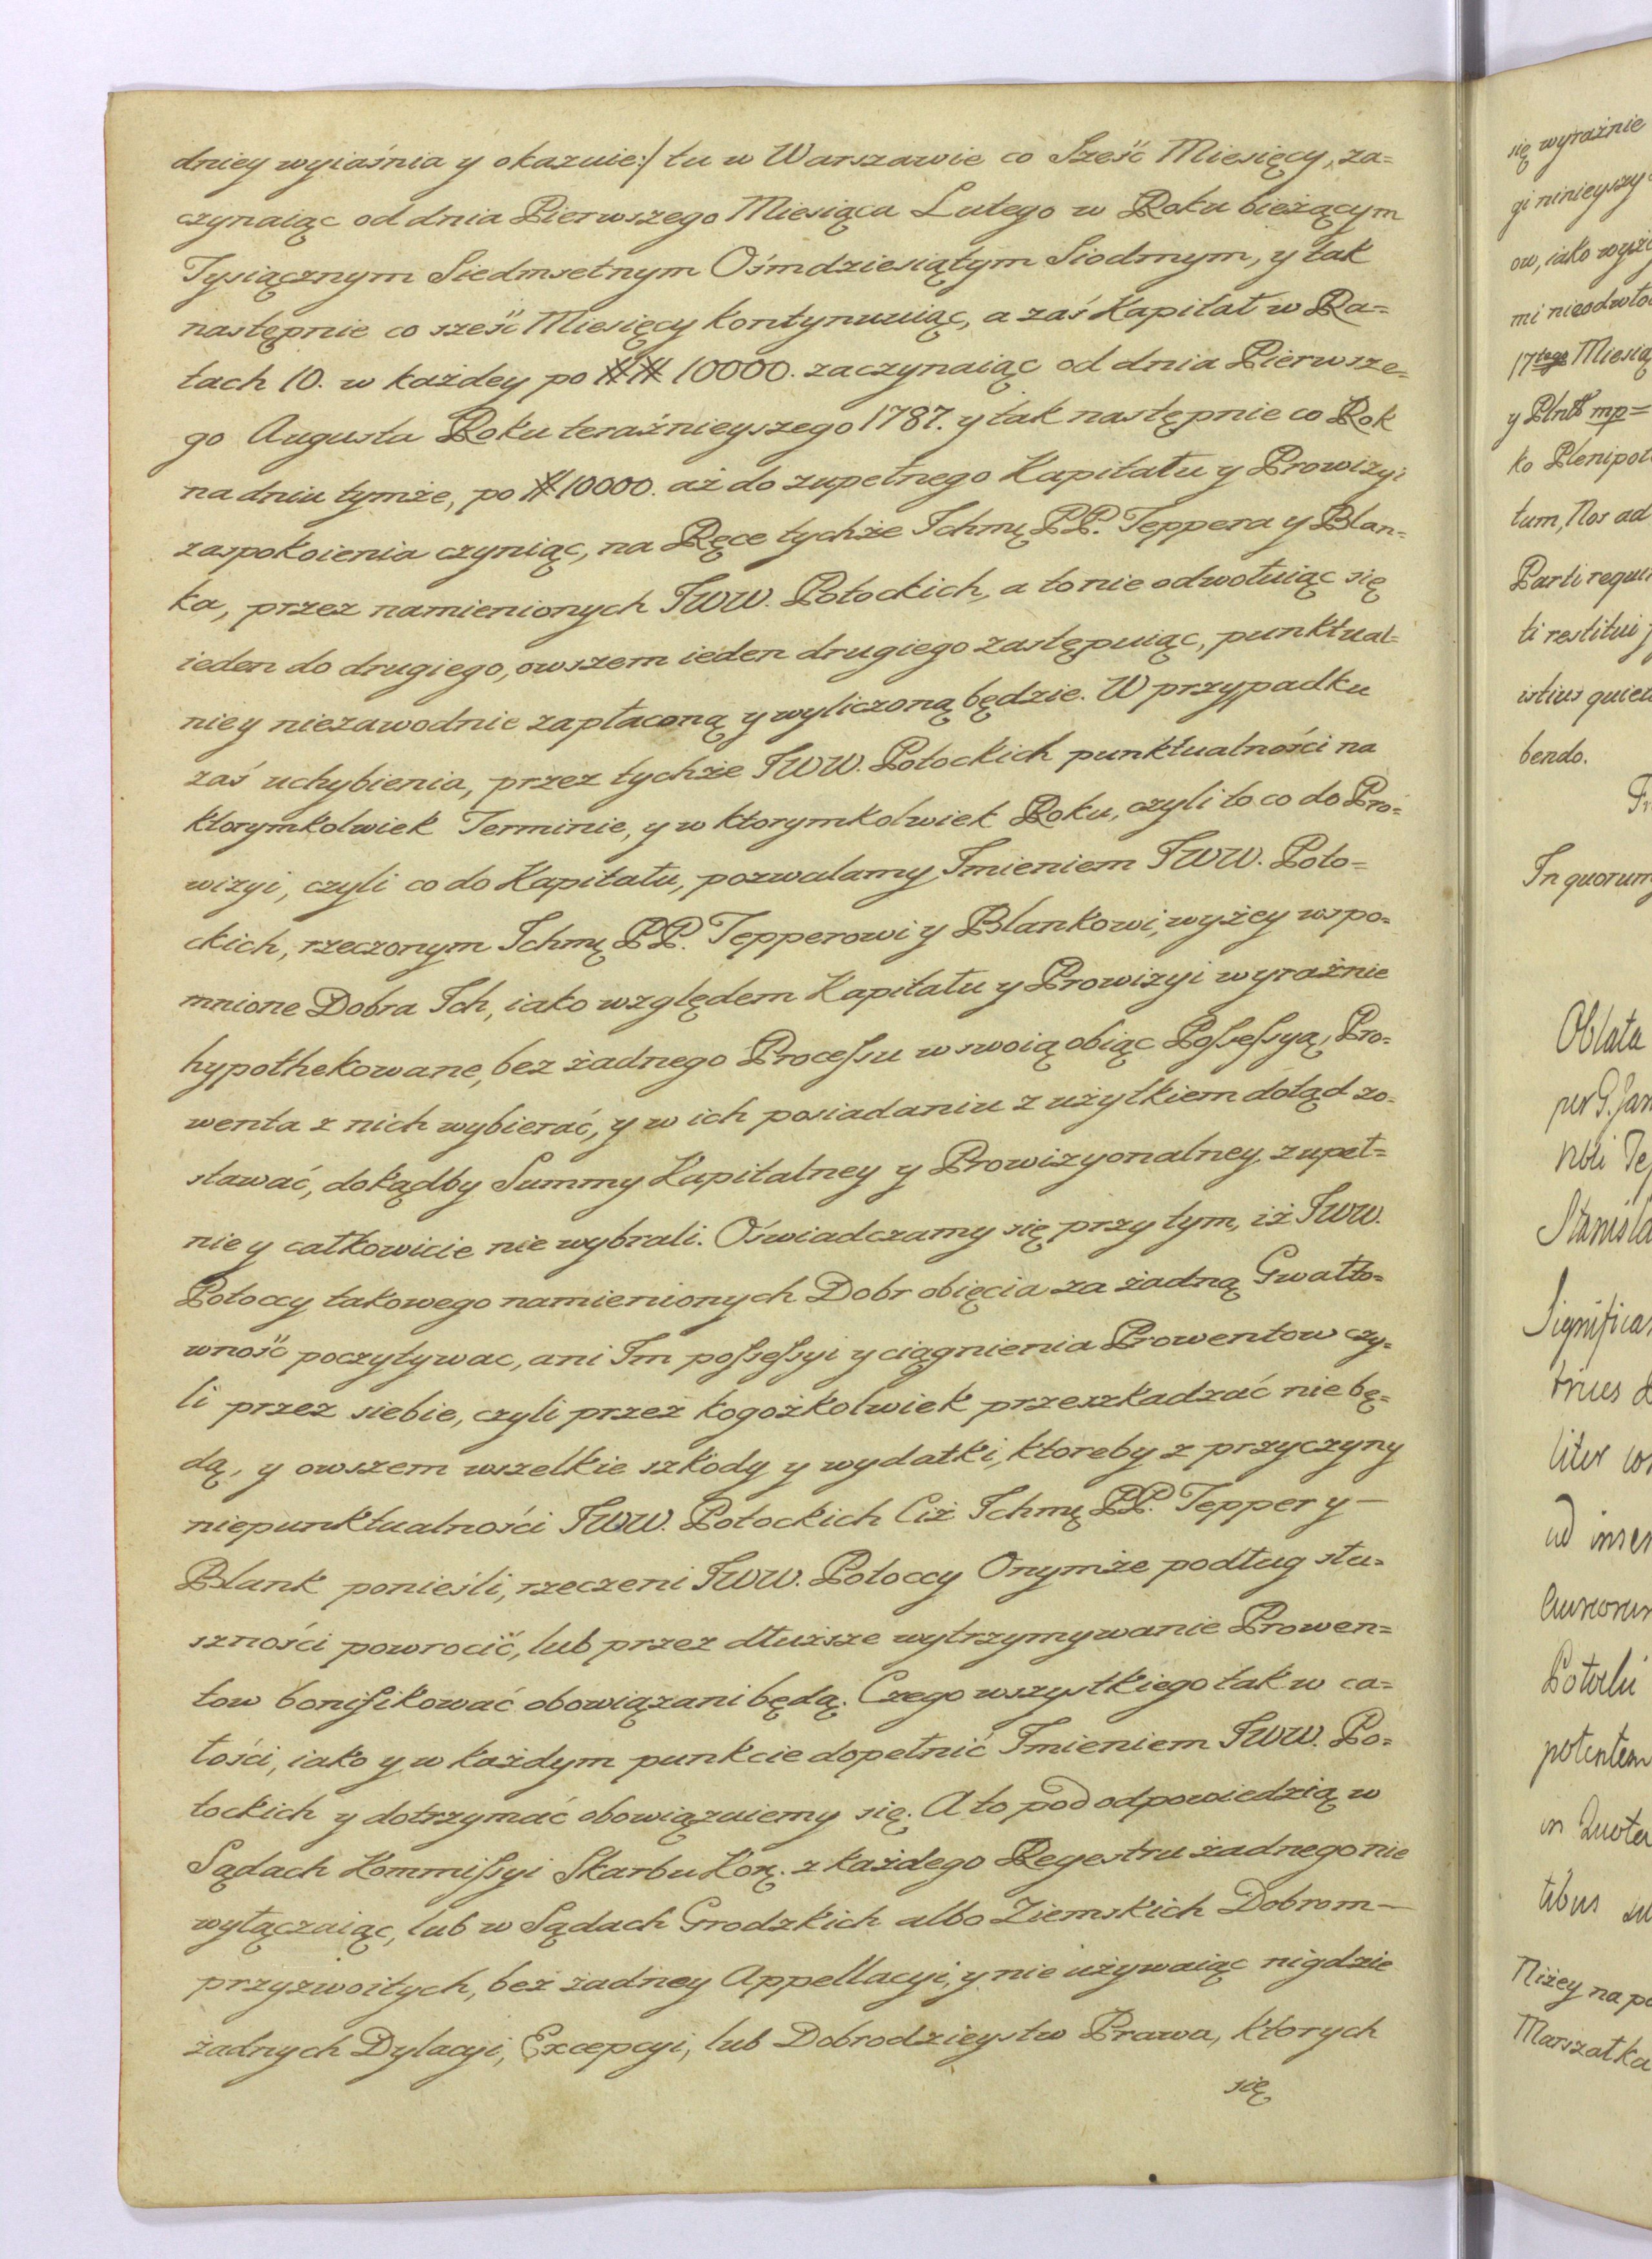 dniey wyiaśnia y okazuie:/ tu w Warszawie co Sześć Miesięcy, za=
czynaiąc od dnia Pierwszego Miesiąca Lutego w Roku bieżącym
Tysiącznym Siedmsetnym Ośmdziesiątym Siodmym, y tak
następnie co sześć Miesięcy kontynuuiąc, a zaś Kapitał w Ra=
tach 10. w każdey po ## 10000. zaczynaiąc od dnia Pierwsze=
go Augusta Roku teraźnieyszego 1787. y tak następnie co Rok
na dniu tymże, po # 10000. aż do zupełnego Kapitału y Prowizyi
zaspokoienia czyniąc, na Ręce tychże Ichmę PP. Teppera y Blan=
ka, przez namienionych JWW. Potockich, a to nie odwołuiąc się
ieden do drugiego, owszem ieden drugiego zastępuiąc, punktual=
nie y niezawodnie zapłaconą y wyliczoną będzie. W przypadku
zaś uchybienia, przez tychże JWW. Potockich punktualności na
ktorymkolwiek Terminie, y w ktorymkolwiek Roku, czyli to co do Pro=
wizyi, czyli co do Kapitału, pozwalamy Imieniem JWW. Poto=
ckich, rzeczonym Ichmę PP. Tepperowi y Blankowi, wyżey wspo=
mnione Dobra Ich, iako względem Kapitału y Prowizyi wyraźnie
hypothekowane, bez żadnego Processu w swoią obiąc Possessyą, Pro=
wenta z nich wybierać, y w ich posiadaniu z użytkiem dotąd zo=
stawać, dokądby Summy Kapitalney y Prowizyonalney zupeł=
nie y całkowicie nie wybrali. Oświadczamy się przy tym, iż JWW.
Potoccy takowego namienionych Dobr obięcia za żadną Gwałto=
wność poczytywac, ani Im possessyi y ciągnienia Prowentow czy=
li przez siebie, czyli przez kogożkolwiek przeszkadzać nie bę=
dą, y owszem wszelkie szkody y wydatki, ktoreby z przyczyny
niepunktualności JWW. Potockich Ciż Ichmę PP. Tepper y —
Blank ponieśli, rzeczeni JWW. Potoccy Onymże podług słu=
szności powrocić, lub przez dłuższe wytrzymywanie Prowen=
tow bonifikować obowiązani będą. Czego wszystkiego tak w ca=
łości, iako y w każdym punkcie dopełnić Imieniem JWW. Po=
tockich y dotrzymać obowiązuiemy się. A to pod odpowiedzią w
Sądach Kommissyi Skarbu Korą. z każdego Regestru żadnego nie
wyłączaiąc, lub w Sądach Grodzkich albo Ziemskich Dobrom —
przyzwoitych, bez żadney Appellacyi, y nie używaiąc nigdzie
żadnych Dylacyi, Excepcyi, lub Dobrodzieystw Prawa, ktorych
się
się wyraźnie
gi ninieyszy
ow, iako wyże
mi nieodwło
17tego Miesią
y Plntt mp=
ko Plenipot
tum, Nos ad
Parti requi
ti restitui
istius quiet
bendo.
In quorum
Oblata
per G. Jan
Nbli Te
Stanisla
Significa
liter
ad inser
Potocki
potentem
tibus
Niżey na po
Marszałka